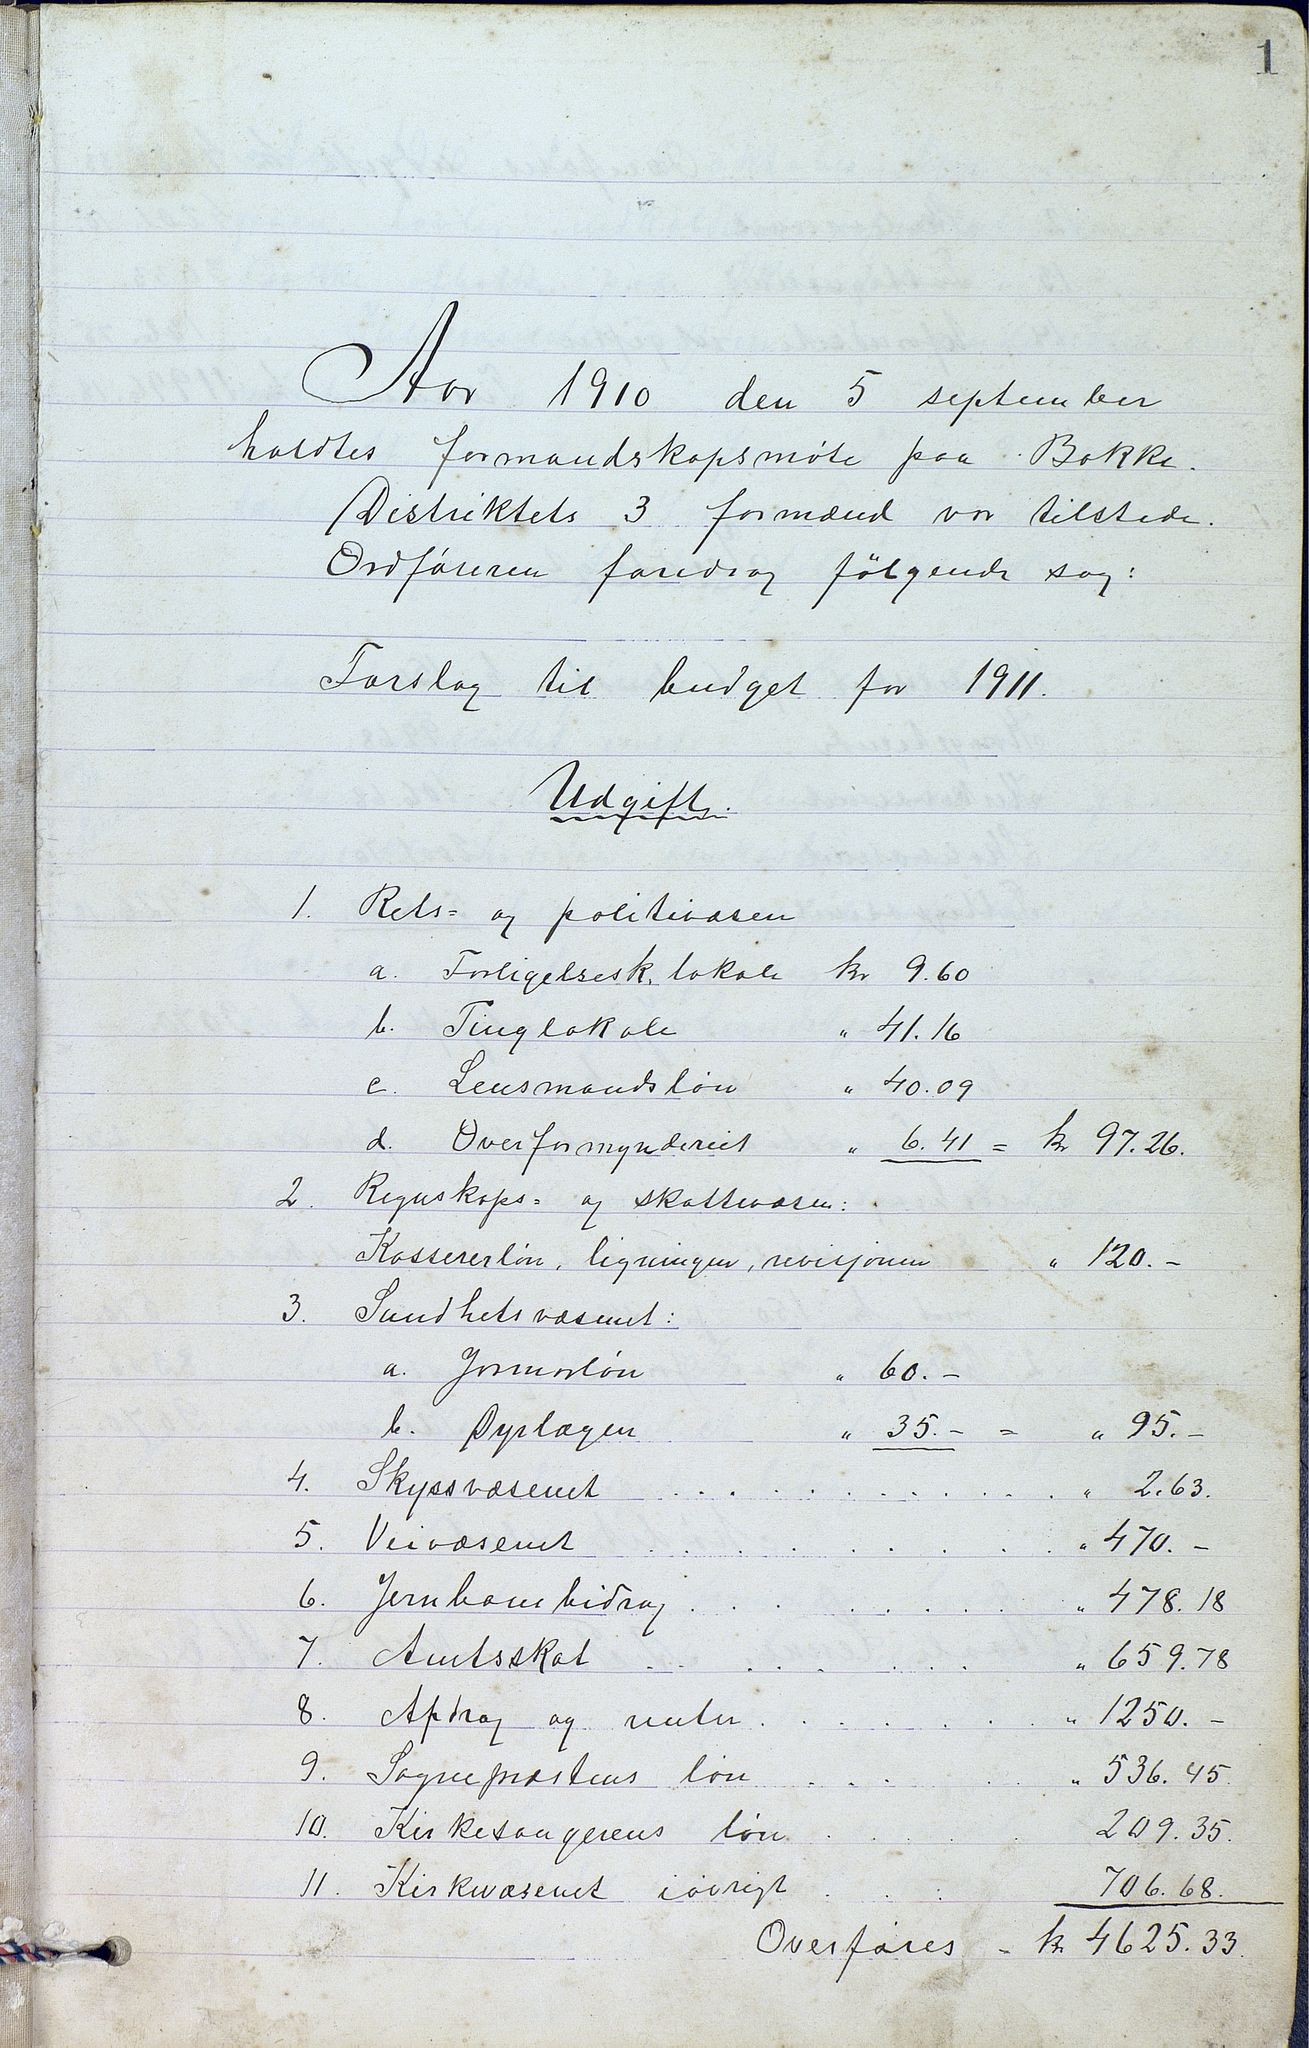 1
Aar 1910 den 5 september
holdtes formandskapsmøte paa Bakke.
Distriktets 3 formænd var tilstede.
Ordføreren foredrog følgende sag:
Forslag til budget for 1911.
Udgift.
1. Rets= og politivæsen
a. Forligelsesk. lokale kr 9.60
b. Tinglokale " 41.16
c. Lensmandsløn " 40.09
d. Overformynderiet " 6.41 = kr 97.26.
2. Regnskaps= og skattevæsen:
Kassererløn, ligningen, revisjonen " 120.-
3. Sundhetsvæsenet:
a. Jormorløn " 60.-
b. Dyrlægen " 35.- = " 95.-
4. Skyssvæsenet . . . . . . . . . . . " 2.63.
5. Veivæsenet . . . . . . . . . " 470.-
6. Jernbanebidrag . . . . . . . . " 478.18
7. Amtsskat . . . . . . . . " 659.78
8. Afdrag og renter . . . . . . . " 1250.-
9. Sogneprestens løn . . . . . " 536.45
10. Kirkesangerens løn . . . . . 209.35.
11. Kirkevæsenet iøvrigt . . . 706.68.
Overføres - kr 4625.33.